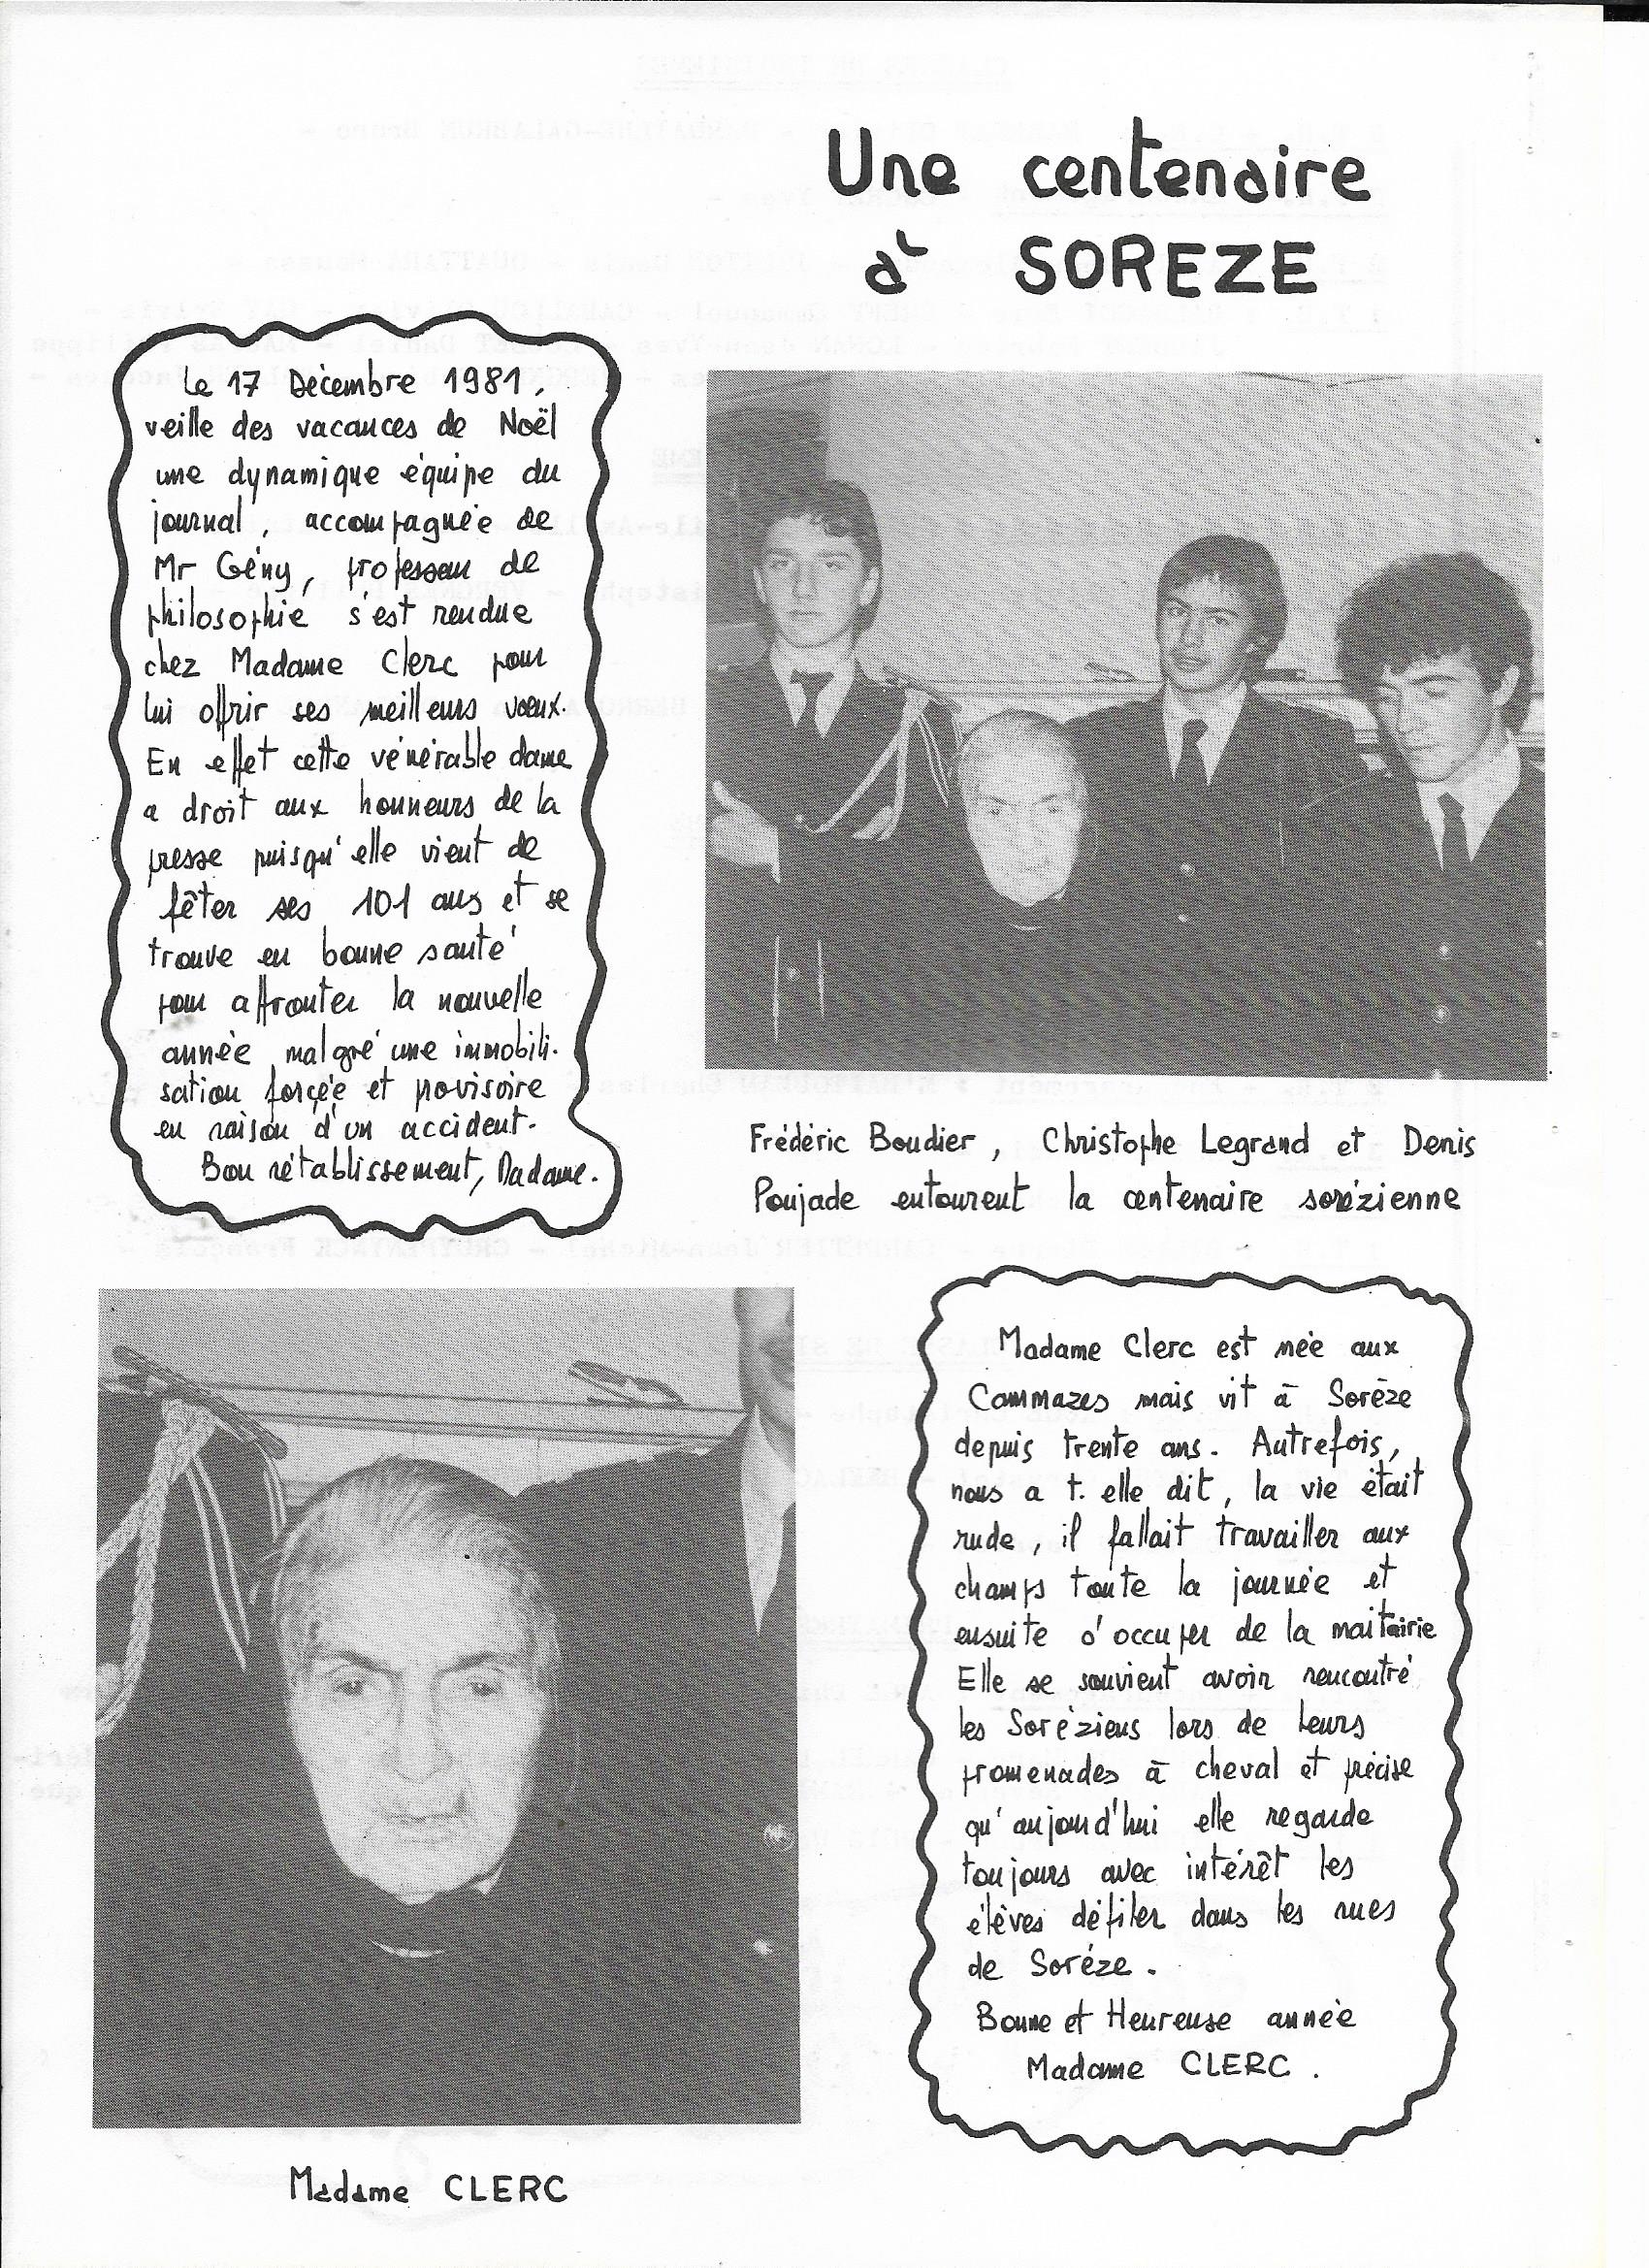 Une centenaire
à SOREZE
Le 17 Décembre 1981,
veille des vacances de Noël
une dynamique équipe du
journal, accompagnée de
Mr Gény, professeur de
philosophie s'est rendue
chez Madame Clerc pour
lui offrir ses meilleurs vœux.
En effet cette vénérable dame
a droit aux honneurs de la
presse puisqu'elle vient de
fêter ses 101 ans et se
trouve en bonne santé
pour affronter la nouvelle
année malgré une immobili-
sation forçée et provisoire
en raison d'un accident.
Bon rétablissement, Madame.
Frédéric Boudier, Christophe Legrand et Denis
Poujade entourent la centenaire sorézienne
Madame Clerc est née aux
Cammazes mais vit à Sorèze
depuis trente ans. Autrefois,
nous a t. elle dit, la vie était
rude, il fallait travailler aux
champs toute la journée et
ensuite s'occuper de la maitairie
Elle se souvient avoir rencontré
les Soréziens lors de leurs
promenades à cheval et précise
qu'aujourd'hui elle regarde
toujours avec intérêt les
élèves défiler dans les rues
de Soréze.
Bonne et Heureuse année
Madame CLERC.
Madame CLERC